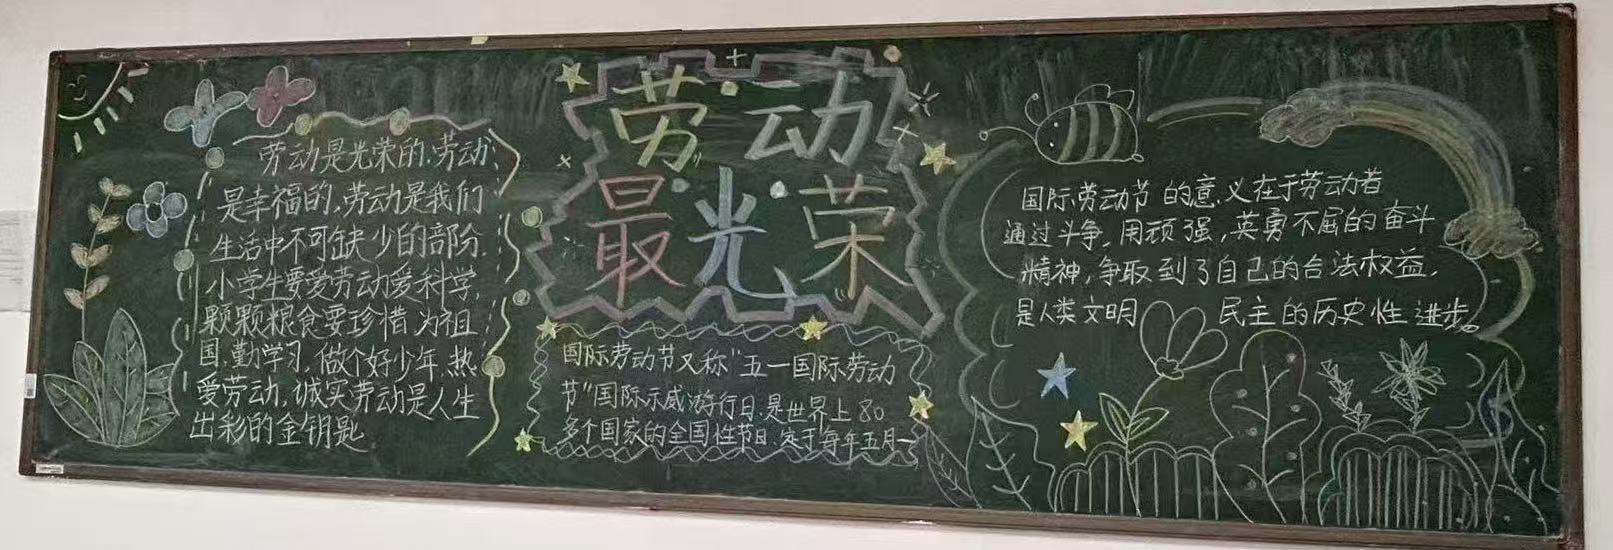 劳动是光荣的,劳动
是幸福的,劳动是我们
生活中不可缺少的部分.
小学生要爱劳动爱科学,
颗颗粮食要珍惜为祖
国,勤学习,做个好少年,热
爱劳动,诚实劳动是人生
出彩的金钥匙
劳动
最光荣
国际劳动节又称"五一国际劳动
节"国际示威游行日.是世界上80
多个国家的全国性节日.定于每年五月一
国际劳动节的意义在于劳动者
通过斗争,用顽强,英勇不屈的奋斗
精神,争取到了自己的合法权益,
是人类文明 民主的历史性进步。